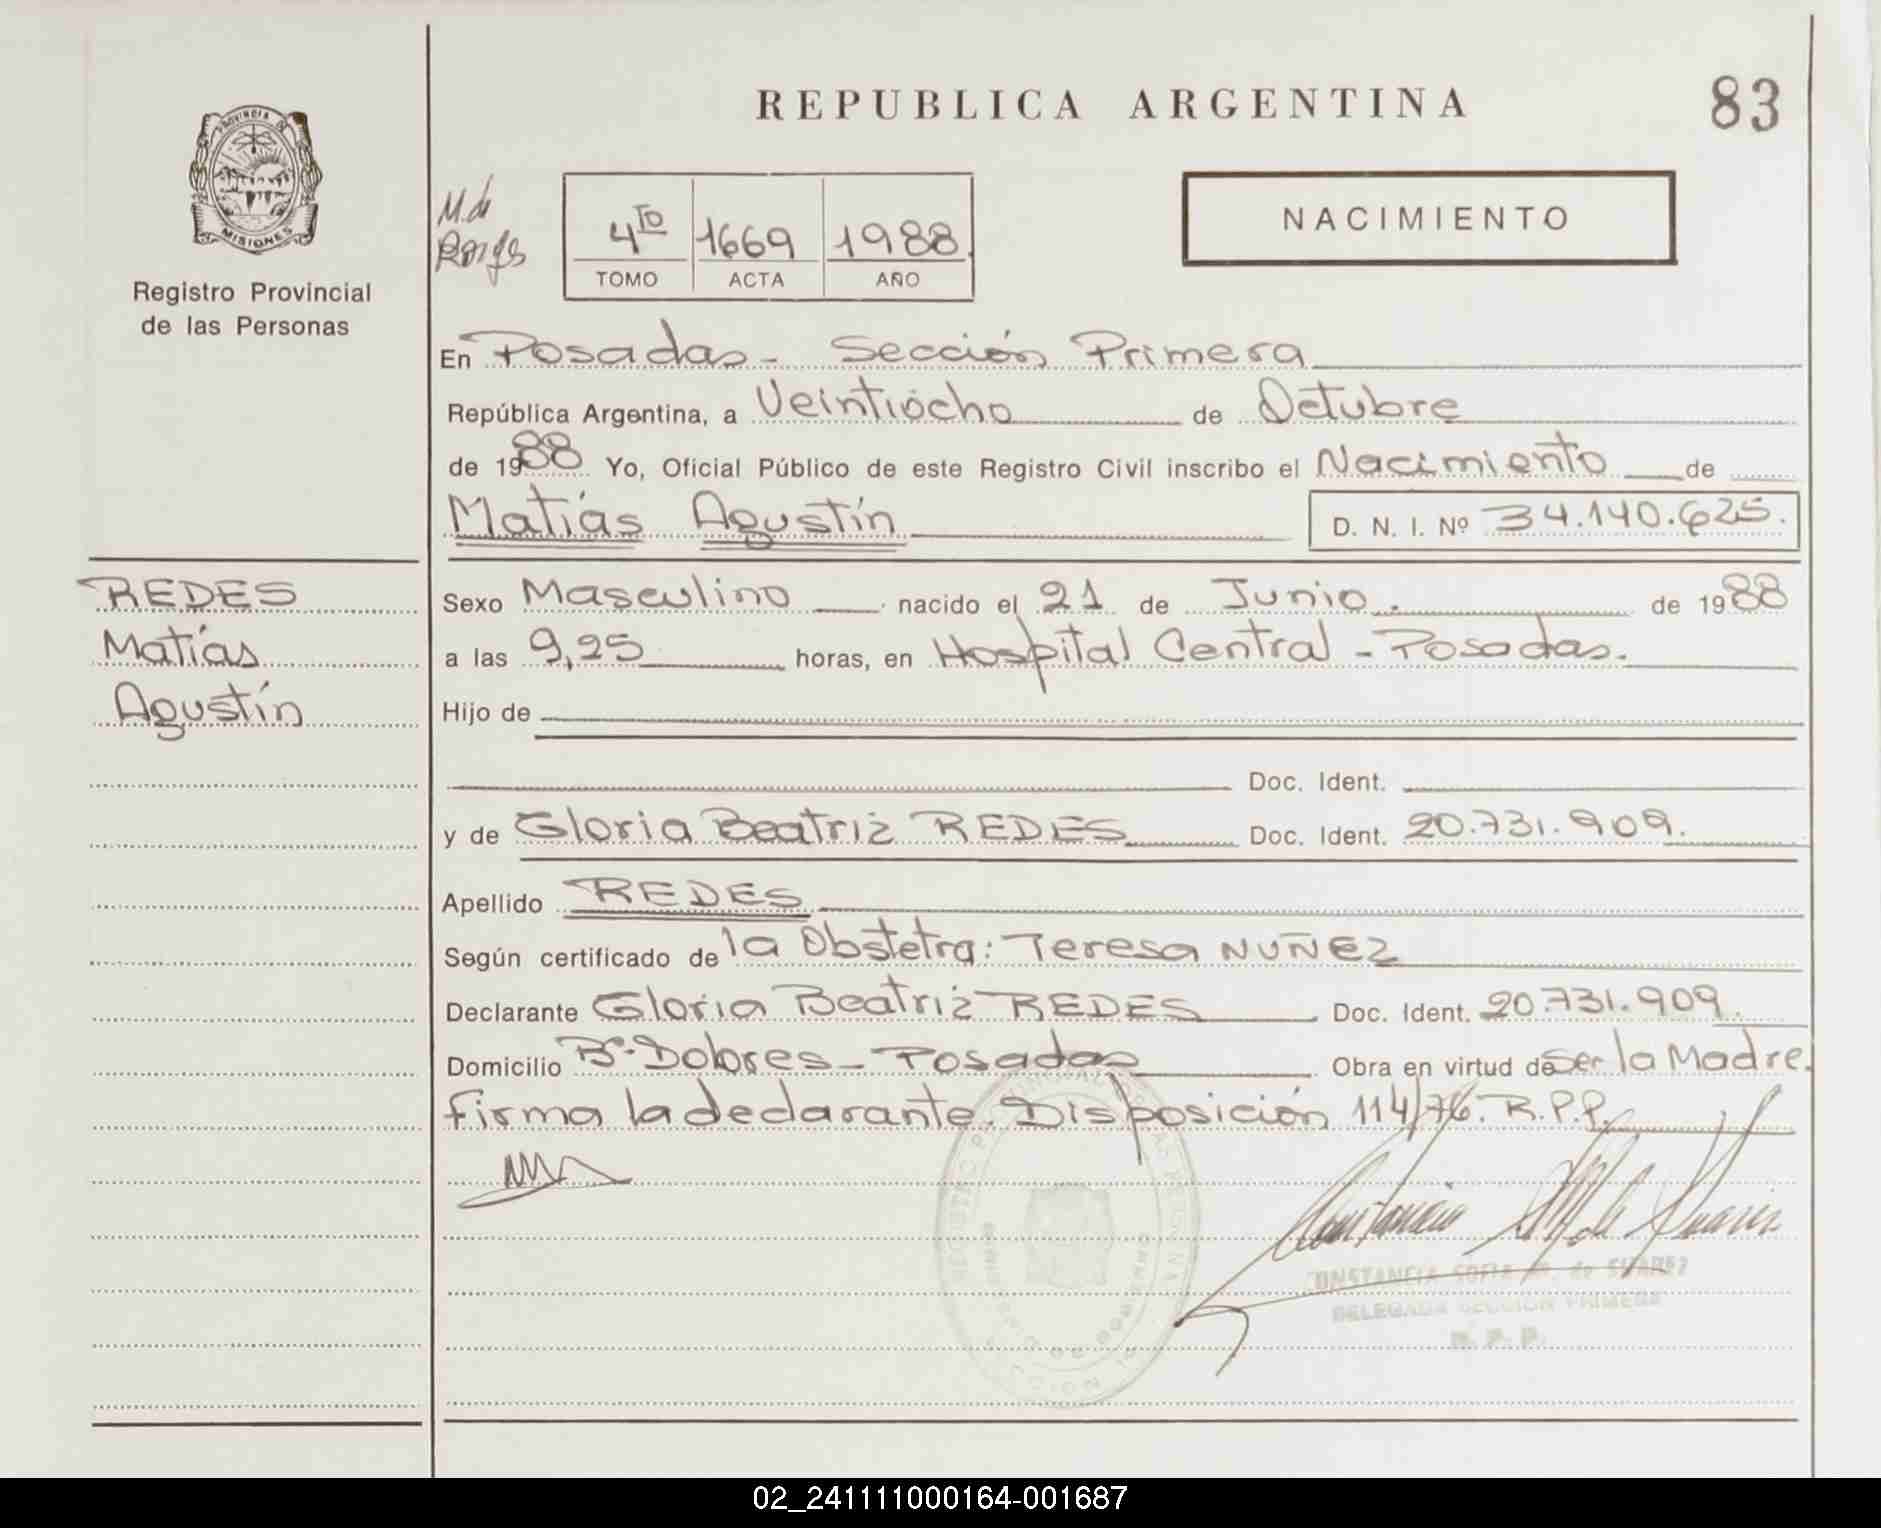 REPUBLICA ARGENTINA
83
PROVINCIA DE
MISIONES
Registro Provincial
de las Personas
M. de
4TO 1669 1988
TOMO ACTA AÑO
NACIMIENTO
En Posadas - Sección Primera
República Argentina, a Veintiócho de Octubre
de 1988 Yo, Oficial Público de este Registro Civil inscribo el Nacimiento de
Matías Agustín D. N. I. Nº 34.140.625.
REDES
Matías
Agustín
Sexo Masculino nacido el 21 de Junio. de 1988
a las 9,25 horas, en Hospital Central - Posadas.
Hijo de
Doc. Ident.
y de Gloria Beatriz REDES Doc. Ident. 20.731.909.
Apellido REDES
Según certificado de la Obstetra: Teresa NUÑEZ
Declarante Gloria Beatriz REDES Doc. Ident. 20.731.909.
Domicilio Bº. Dolores - Posadas Obra en virtud de Ser la Madre.
Firma la declarante. Disposición 114/76. R.P.P.
Constancia M de Suarez
CONSTANCIA SOFIA M. de SUAREZ
DELEGADA SECCION PRIMERA
R. P. P.
02_241111000164-001687